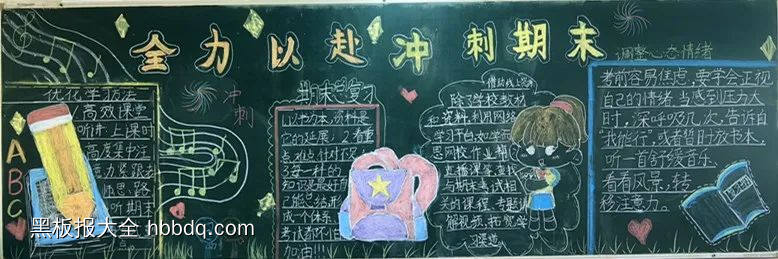 全力以赴冲刺期末
优化学习方法
高效课堂
听讲,上课时
高度集中注
意力紧跟老
师思路
听期末
ABC
冲刺
期末总复习
以课本为本,资料是
它的延展;2看重
点难点针对复习
3每一种的
知识是最好
己能总结
成一个体系
考试都不怕
加油!!!
借助线上资源
除了学校教材
和资料,利用网络
学习平台,如学而
思网校,作业帮
直播课等,查找
与期末考试相
关的课程,专题讲
解视频,拓宽学
习渠道。
调整心态情绪
考前容易焦虑,要学会正视
自己的情绪,当感到压力大
时,深呼吸几次,告诉自己
“我能行”,或者暂时放书本,
听一首舒缓音乐,
看看风景,转
移注意力。
黑板报大全 hbbdq.com